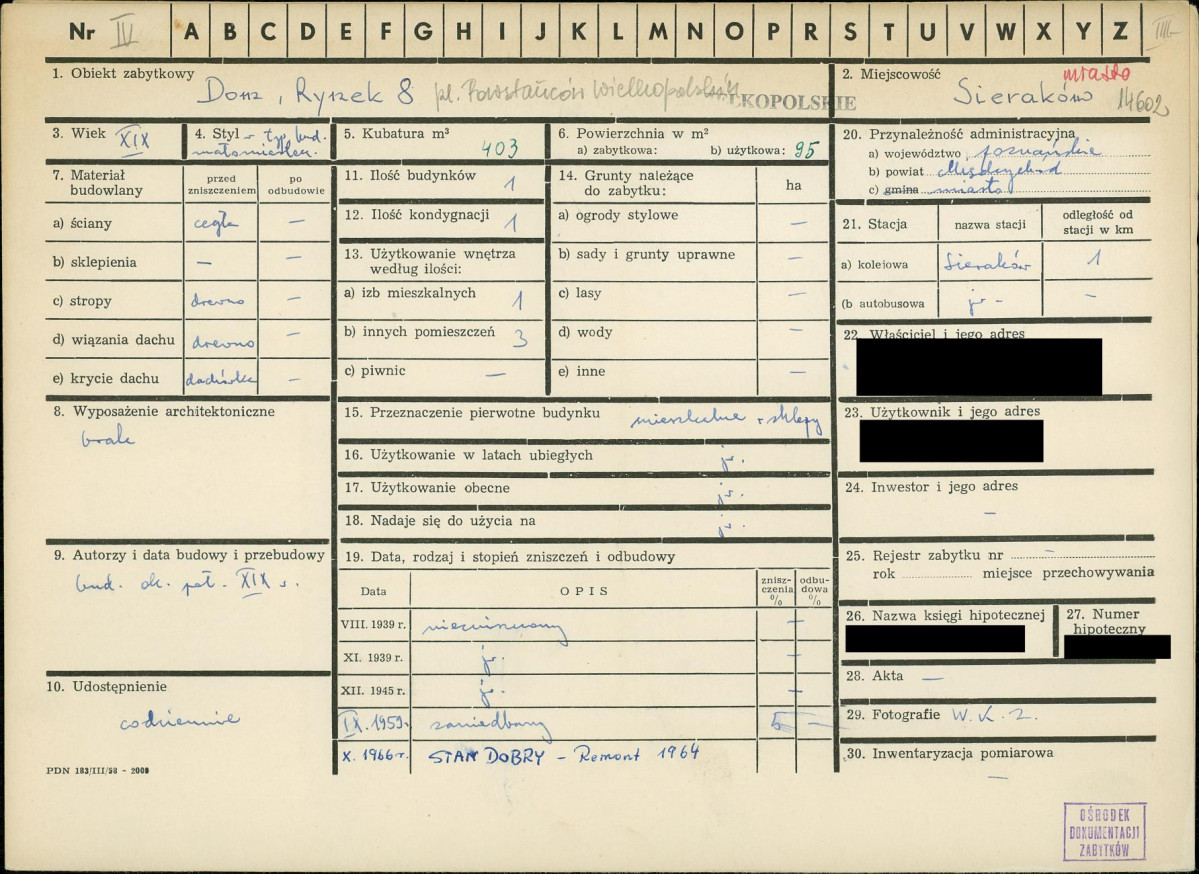 Nr IV A B C D E F G H I J K L M N O P R S T U V W X Y Z
1. Obiekt zabytkowy Dom, Rynek 8 pl. Powstańców Wielkopolskich
LKOPOLSKIE
2. Miejscowość miasto
Sieraków 14602
3. Wiek XIX
4. Styl - typ. bud.
małomiasteczk.
5. Kubatura m³ 403
6. Powierzchnia w m²
a) zabytkowa: b) użytkowa: 95
7. Materiał budowlany
przed zniszczeniem
po odbudowie
a) ściany cegła —
b) sklepienia —
c) stropy drewno —
d) wiązania dachu drewno —
e) krycie dachu dachówka —
8. Wyposażenie architektoniczne
brak
9. Autorzy i data budowy i przebudowy
bud. ok. poł. XIX w.
10. Udostępnienie
codziennie
PDN 183/III/58 - 2000
11. Ilość budynków 1
12. Ilość kondygnacji 1
13. Użytkowanie wnętrza
według ilości:
a) izb mieszkalnych 1
b) innych pomieszczeń 3
c) piwnic —
14. Grunty należące
do zabytku: ha
a) ogrody stylowe —
b) sady i grunty uprawne —
c) lasy —
d) wody —
e) inne —
15. Przeznaczenie pierwotne budynku mieszkalne + sklepy
16. Użytkowanie w latach ubiegłych j.w.
17. Użytkowanie obecne j.w.
18. Nadaje się do użycia na j.w.
19. Data, rodzaj i stopień zniszczeń i odbudowy
Data OPIS znisz-
czenia
% odbu-
dowa
%
VIII. 1939 r. niezniszczony —
XI. 1939 r. j. —
XII. 1945 r. j. —
IX. 1959. zaniedbany 5 —
X. 1966 r. STAN DOBRY – Remont 1964
20. Przynależność administracyjna
a) województwo poznańskie
b) powiat Międzychód
c) gmina miasto
21. Stacja nazwa stacji odległość od
stacji w km
a) kolejowa Sieraków 1
(b autobusowa j.w. - —
22. Właściciel i jego adres
23. Użytkownik i jego adres
24. Inwestor i jego adres
—
25. Rejestr zabytku nr —
rok miejsce przechowywania
26. Nazwa księgi hipotecznej
27. Numer
hipoteczny
28. Akta —
29. Fotografie W.K.Z.
30. Inwentaryzacja pomiarowa
—
OŚRODEK
DOKUMENTACJI
ZABYTKÓW